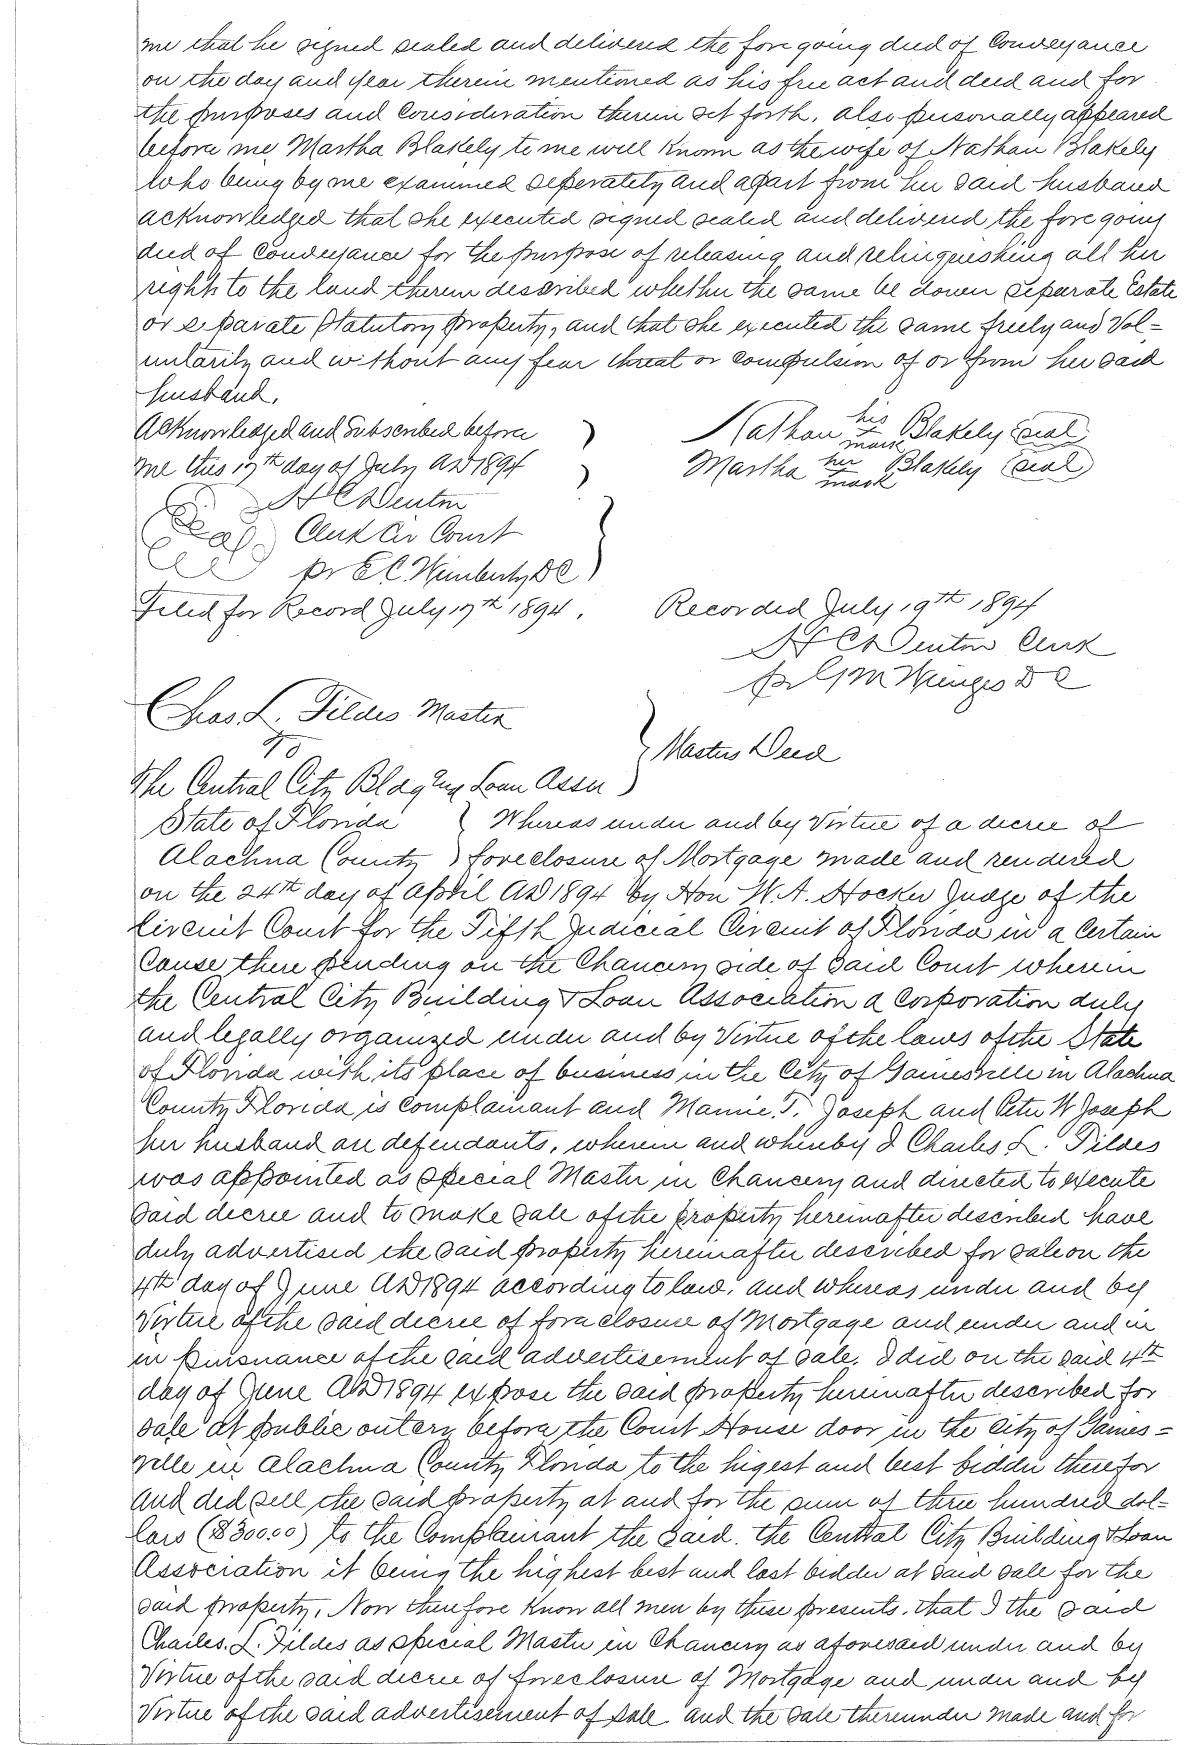 me that he signed sealed and delivered the fore going deed of Conveyance
on the day and year therein mentioned as his free act and deed and for
the purposes and Consideration therein set forth. also personally appeared
before me Martha Blakely to me well known as the wife of Nathan Blakely
who being by me examined seperately and apart from her said husband
acknowledged that she executed signed sealed and delivered the fore going
deed of Conveyance for the purpose of releasing and relinquishing all her
right to the land therein described whether the same be dower separate Estate
or separate Statutory property, and that she executed the same freely and Vol=
untarily and without any fear threat or compulsion of or from her said
husband.
Acknowledged and Subscribed before
me this 17th day of July AD 1894
Nathan his mark Blakely (seal)
Martha her mark Blakely (seal)
Seal
H C Denton
Clerk Cir Court
pr E.C. Wimberly DC
Filed for Record July 17th 1894. Recorded July 19th 1894
H C Denton Clerk
pr G M Wienges D C
Chas. L. Fildes Master
To
The Central City Bldg and Loan Assn
Masters Deed
State of Florida } Whereas under and by Virtue of a decree of
Alachua County } foreclosure of Mortgage made and rendered
on the 24th day of April AD 1894 by Hon W.A. Hocker Judge of the
Circuit Court for the Fifth Judicial Circuit of Florida in a Certain
Cause there pending on the Chancery side of said Court wherein
the Central City Building & Loan Association a Corporation duly
and legally organized under and by Virtue of the laws of the State
of Florida with its place of business in the City of Gainesville in Alachua
County Florida is complainant and Mamie. T. Joseph and Peter W Joseph
her husband are defendants. wherein and whereby I Charles L. Fildes
was appointed as special Master in Chancery and directed to execute
said decree and to make sale of the property hereinafter described have
duly advertised the said property hereinafter described for sale on the
4th day of June AD 1894 according to law. and whereas under and by
Virtue of the said decree of foreclosure of Mortgage and under and in
in pursuance of the said advertisement of sale. I did on the said 4th
day of June AD 1894 expose the said property hereinafter described for
sale at public outcry before the Court House door in the City of Gaines=
ville in Alachua County Florida to the higest and best bidder therefor
and did sell the said property at and for the sum of three hundred dol=
lars ($300.00) to the Complainant the said. the Central City Building & Loan
Association it being the highest best and last bidder at said sale for the
said property. Now therefore know all men by these presents. that I the said
Charles. L. Fildes as special Master in Chancery as aforesaid under and by
Virtue of the said decree of foreclosure of Mortgage and under and by
Virtue of the said advertisement of sale and the sale thereunder made and for